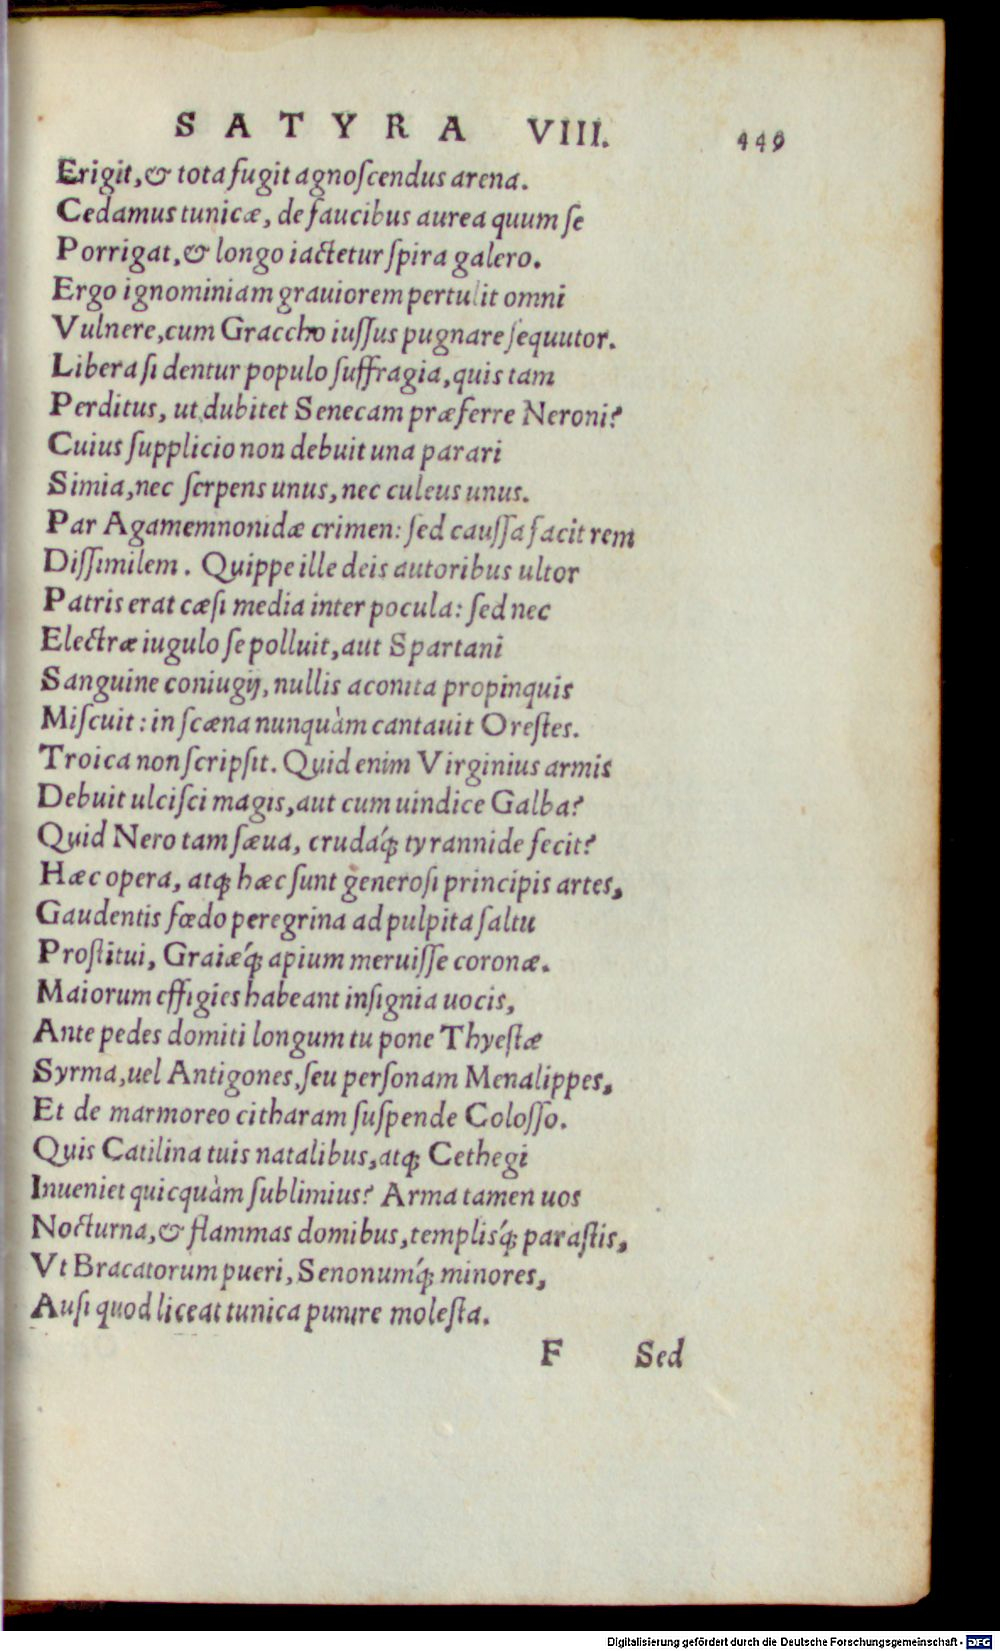 SATYRA VIII. 449
Erigit, & tota fugit agnoſcendus arena.
Cedamus tunicæ, de faucibus aurea quum ſe
Porrigat, & longo iactetur ſpira galero.
Ergo ignominiam grauiorem pertulit omni
Vulnere, cum Graccho iuſſus pugnare ſequutor.
Libera ſi dentur populo ſuffragia, quis tam
Perditus, ut dubitet Senecam præferre Neroni?
Cuius ſupplicio non debuit una parari
Simia, nec ſerpens unus, nec culeus unus.
Par Agamemnonidæ crimen: ſed cauſſa facit rem
Diſſimilem. Quippe ille deis autoribus ultor
Patris erat cæſi media inter pocula: ſed nec
Electræ iugulo ſe polluit, aut Spartani
Sanguine coniugij, nullis aconita propinquis
Miſcuit: in ſcæna nunquàm cantauit Oreſtes.
Troica non ſcripſit. Quid enim Virginius armis
Debuit ulciſci magis, aut cum uindice Galba?
Quid Nero tam ſæua, crudáq; tyrannide fecit?
Hæc opera, atq; hæc ſunt generoſi principis artes,
Gaudentis fœdo peregrina ad pulpita ſaltu
Proſtitui, Graiæq́; apium meruiſſe coronæ.
Maiorum effigies habeant inſignia uocis,
Ante pedes domiti longum tu pone Thyeſtæ
Syrma, uel Antigones, ſeu perſonam Menalippes,
Et de marmoreo citharam ſuſpende Coloſſo.
Quis Catilina tuis natalibus, atq; Cethegi
Inueniet quicquàm ſublimius? Arma tamen uos
Nocturna, & flammas domibus, templisq́; paraſtis,
Vt Bracatorum pueri, Senonumq́; minores,
Auſi quod liceat tunica punire moleſta.
F Sed
Digitalisierung gefördert durch die Deutsche Forschungsgemeinschaft - DFG